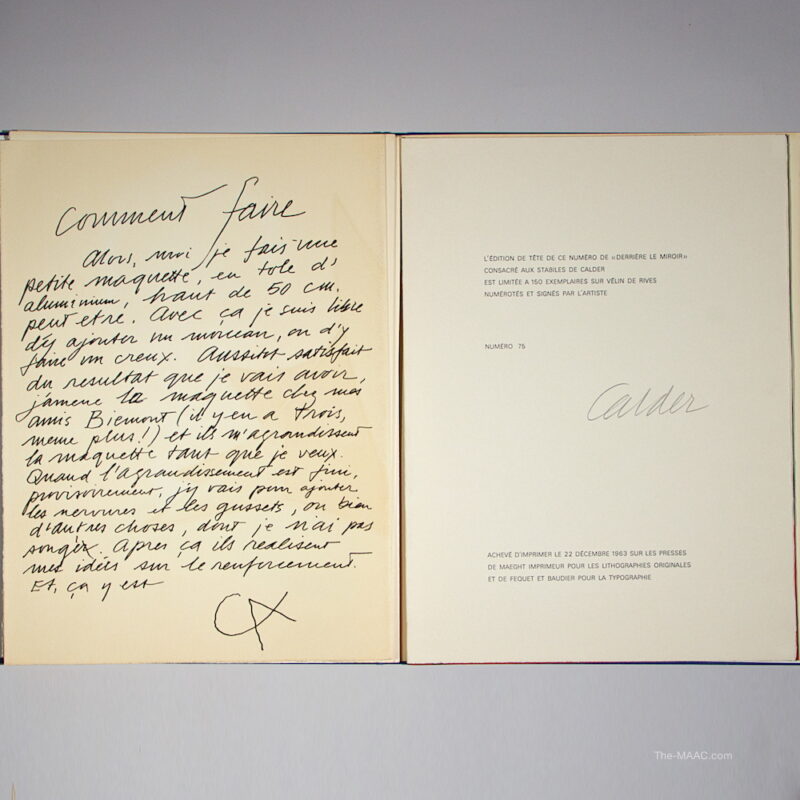 Comment faire
Alors, moi je fais une
petite maquette, en tole d'
aluminium, haut de 50 cm.
peut etre. Avec ça je suis libre
d'y ajouter un morceau, ou d'y
faire un creux. Aussitot satisfait
du resultat que je vais avoir,
j'amene la maquette chez mes
amis Biemont (il y en a trois,
meme plus!) et ils m'agrandissent
la maquette tant que je veux.
Quand l'agrandissement est fini,
provisoirement, j'y vais pour ajouter
les nervures et les gussets, ou bien
d'autres choses, dont je n'ai pas
songé. Apres ça ils realisent
mes idées sur le renforcement.
Et, ça y est
CA
L'ÉDITION DE TÊTE DE CE NUMÉRO DE «DERRIÈRE LE MIROIR»
CONSACRÉ AUX STABILES DE CALDER
EST LIMITÉE A 150 EXEMPLAIRES SUR VÉLIN DE RIVES
NUMÉROTÉS ET SIGNÉS PAR L'ARTISTE
NUMÉRO 75
Calder
ACHEVÉ D'IMPRIMER LE 22 DÉCEMBRE 1963 SUR LES PRESSES
DE MAEGHT IMPRIMEUR POUR LES LITHOGRAPHIES ORIGINALES
ET DE FEQUET ET BAUDIER POUR LA TYPOGRAPHIE
The-MAAC.com